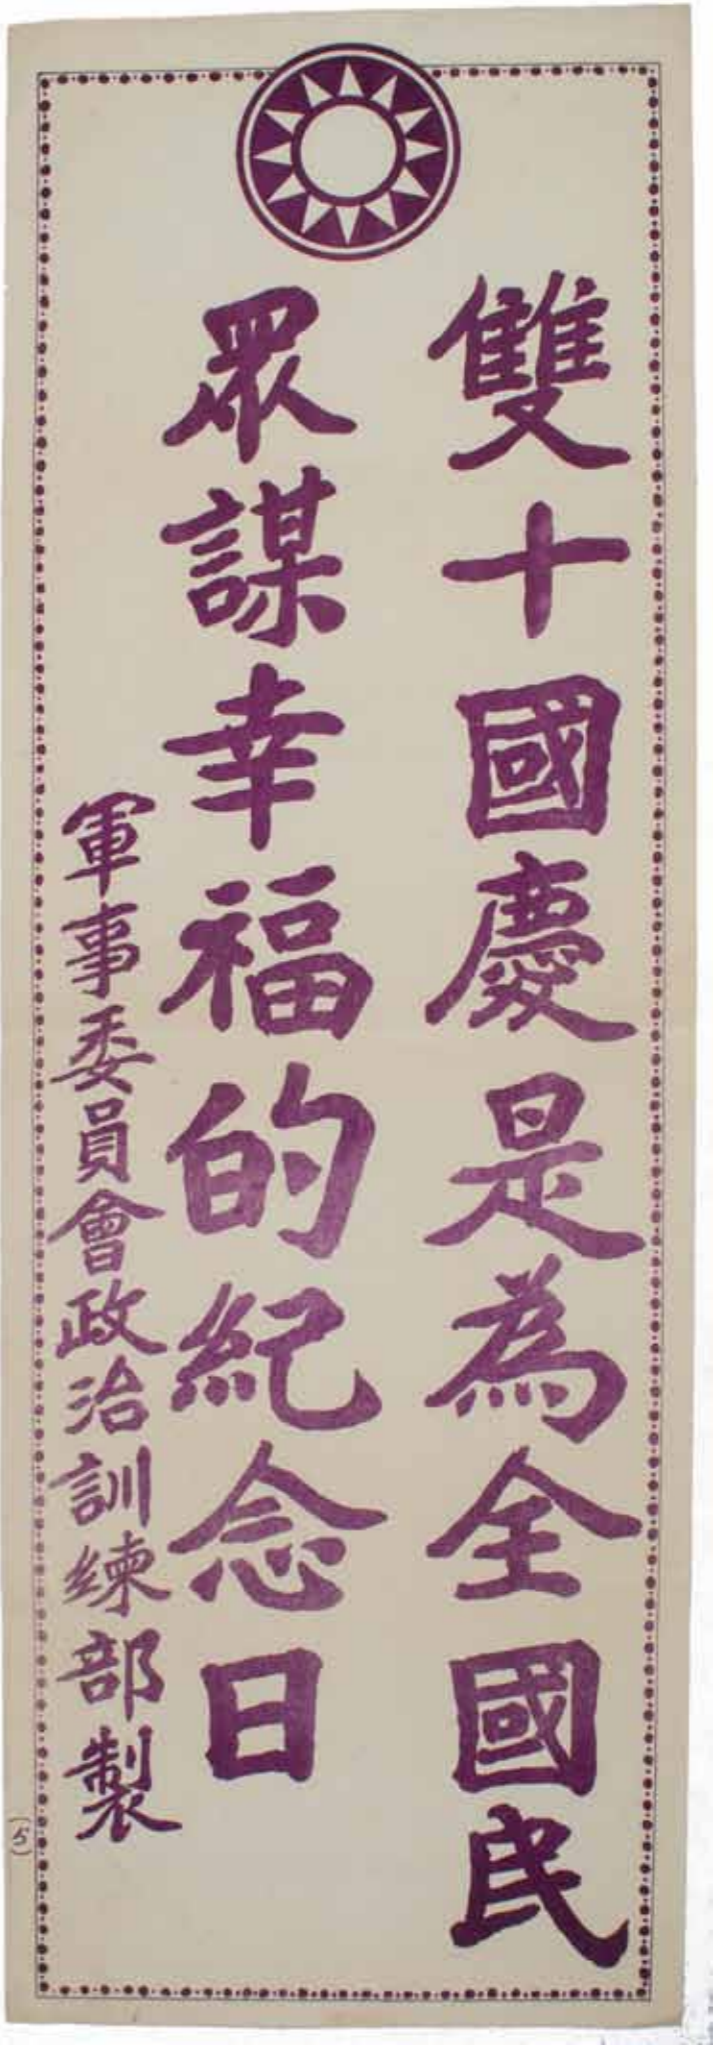 雙十國慶是為全國民
眾謀幸福的紀念日
軍事委員會政治訓練部製
(5)